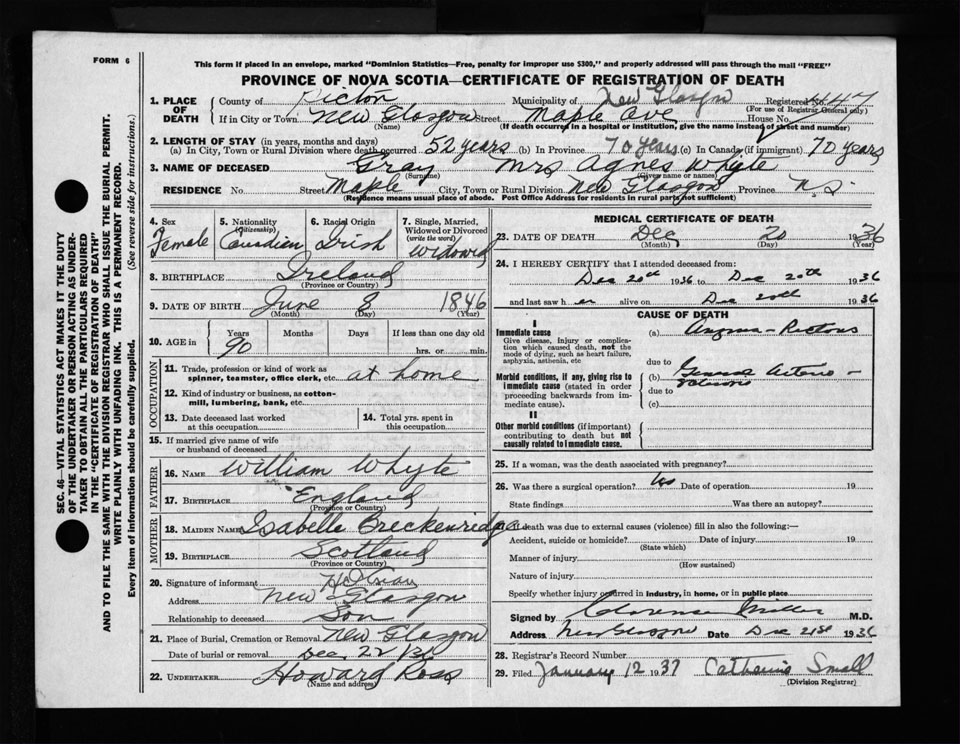 FORM 6
This form if placed in an envelope, marked "Dominion Statistics—Free, penalty for improper use $300," and properly addressed will pass through the mail "FREE"
PROVINCE OF NOVA SCOTIA—CERTIFICATE OF REGISTRATION OF DEATH
SEC. 46—VITAL STATISTICS ACT MAKES IT THE DUTY
OF THE UNDERTAKER OR PERSON ACTING AS UNDER-
TAKER TO OBTAIN ALL THE PARTICULARS REQUIRED
IN THE "CERTIFICATE OF REGISTRATION OF DEATH"
AND TO FILE THE SAME WITH THE DIVISION REGISTRAR WHO SHALL ISSUE THE BURIAL PERMIT.
WRITE PLAINLY WITH UNFADING INK. THIS IS A PERMANENT RECORD.
Every item of information should be carefully supplied. (See reverse side for instructions.)
1. PLACE OF DEATH County of Pictou Municipality of New Glasgow Registered No. 447
(For use of Registrar General only)
If in City or Town New Glasgow Street Maple Ave House No.
(Name) (If death occurred in a hospital or institution, give the name instead of street and number)
2. LENGTH OF STAY (in years, months and days)
(a) In City, Town or Rural Division where death occurred 52 years (b) In Province 70 years (c) In Canada (if immigrant) 70 years
3. NAME OF DECEASED Gray Mrs Agnes Whyte
(Surname) (Given name or names)
RESIDENCE No. Street Maple City, Town or Rural Division New Glasgow Province N.S.
(Residence means usual place of abode. Post Office Address for residents in rural parts not sufficient)
4. Sex Female
5. Nationality (Citizenship) Canadian
6. Racial Origin Irish
7. Single, Married, Widowed or Divorced (write the word) Widowed
8. BIRTHPLACE Ireland
(Province or Country)
9. DATE OF BIRTH June 8 1846
(Month) (Day) (Year)
10. AGE in Years 90 Months Days If less than one day old
hrs. or min.
OCCUPATION
11. Trade, profession or kind of work as
spinner, teamster, office clerk, etc. at home
12. Kind of industry or business, as cotton-
mill, lumbering, bank, etc.
13. Date deceased last worked
at this occupation
14. Total yrs. spent in
this occupation
15. If married give name of wife
or husband of deceased
FATHER
16. NAME William Whyte
17. BIRTHPLACE England
(Province or Country)
MOTHER
18. MAIDEN NAME Isabelle Breckenridge
19. BIRTHPLACE Scotland
(Province or Country)
20. Signature of informant
Address New Glasgow
Relationship to deceased Son
21. Place of Burial, Cremation or Removal New Glasgow
Date of burial or removal Dec 22/36
22. UNDERTAKER Howard Ross
(Name and address)
MEDICAL CERTIFICATE OF DEATH
23. DATE OF DEATH Dec 20 1936
(Month) (Day) (Year)
24. I HEREBY CERTIFY that I attended deceased from:
Dec 20th 1936 to Dec 20th 1936
and last saw h er alive on Dec 20th 1936
CAUSE OF DEATH
I
Immediate cause
Give disease, injury or complica-
tion which caused death, not the
mode of dying, such as heart failure,
asphyxia, asthenia, etc
(a) Angina - Pectoris
due to
Morbid conditions, if any, giving rise to
immediate cause (stated in order
proceeding backwards from im-
mediate cause).
(b) General Arterio -
due to
(c)
II
Other morbid conditions (if important)
contributing to death but not
causally related to immediate cause.
25. If a woman, was the death associated with pregnancy?
26. Was there a surgical operation? No Date of operation 19
State findings Was there an autopsy?
If death was due to external causes (violence) fill in also the following:—
Accident, suicide or homicide? Date of injury 19
(State which)
Manner of injury
(How sustained)
Nature of injury
Specify whether injury occurred in industry, in home, or in public place
Signed by Clarence Miller M.D.
Address New Glasgow Date Dec 21st 1936
28. Registrar's Record Number
29. Filed January 12 1937 Catherine Small
(Division Registrar)